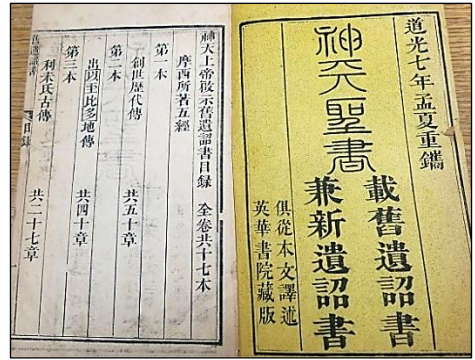 道光七年孟夏重鐫
載舊遺詔書
兼新遺詔書
神天聖書
俱從本文譯述
英華書院藏版
神天上帝啟示舊遺詔書目錄 全卷共十七本
摩西所著五經
第一本
創世歷代傳 共五十章
第二本
出以至比多地傳 共四十章
第三本
利未氏古傳 共二十七章
目錄